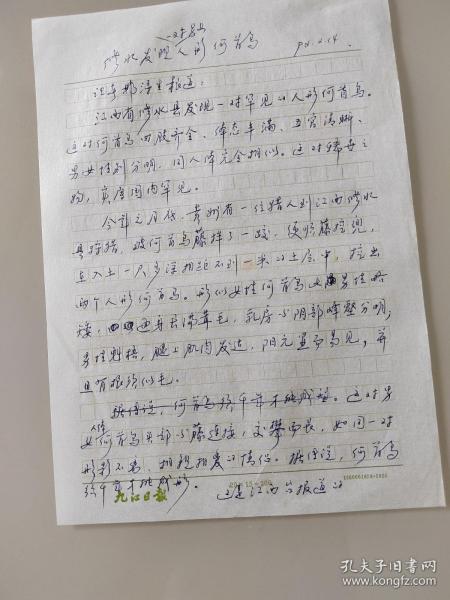 一对男女
修水发现人形何首乌
记者郑浩生报道:
江西省修水县发现一对罕见的人形何首乌。
这对何首乌四肢齐全、体态丰满、五官清晰、
男女性别分明,同人体完全相似。这对稀奇之
物,实属国内罕见。
今年元月份,贵州有一位猎人到江西修水
县狩猎,被何首乌藤绊了一跤,便顺藤挖兜,
在入土一尺多深相距不到一米的土层中,挖出
两个人形何首乌。形似女性何首乌
矮,乳房与阴部峰壑分明;
男性魁梧,腿上肌肉发达,阳元显而易见,并
且有根须似毛。
据传说,何首乌须千年才能成形。这对男
女何首乌头部与藤连接,交攀而长,如同一对
形影不离、相亲相爱的情侣。据传说,何首乌
须千年才能成形。
这是江西台报道的
九江日报
20×15=300
孔夫子旧书网
www.kongfz.com